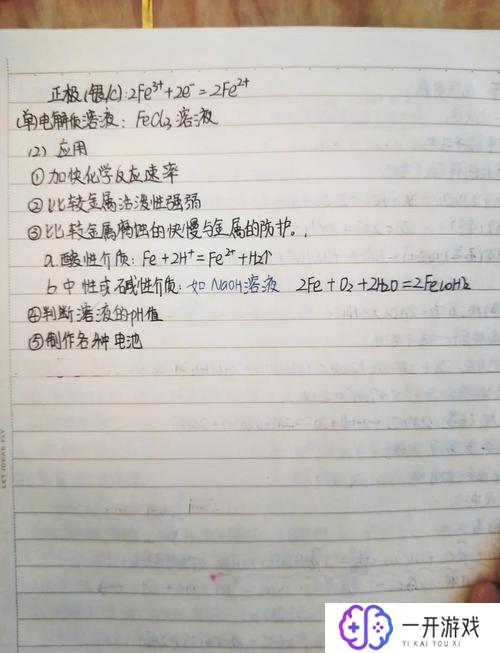 正极(银/C): 2Fe³⁺+2e⁻=2Fe²⁺
电解质溶液: FeCl₃溶液
(2) 应用
① 加快化学反应速率
② 比较金属活泼性强弱
③ 比较金属腐蚀的快慢与金属的防护。
a.酸性介质: Fe+2H⁺=Fe²⁺+H₂↑
b.中性或碱性介质: 如NaOH溶液 2Fe+O₂+2H₂O=2Fe(OH)₂
④ 判断溶液的pH值
⑤ 制作各种电池
LEYIDUAN FLY
一开游戏
YI KAI YOU XI